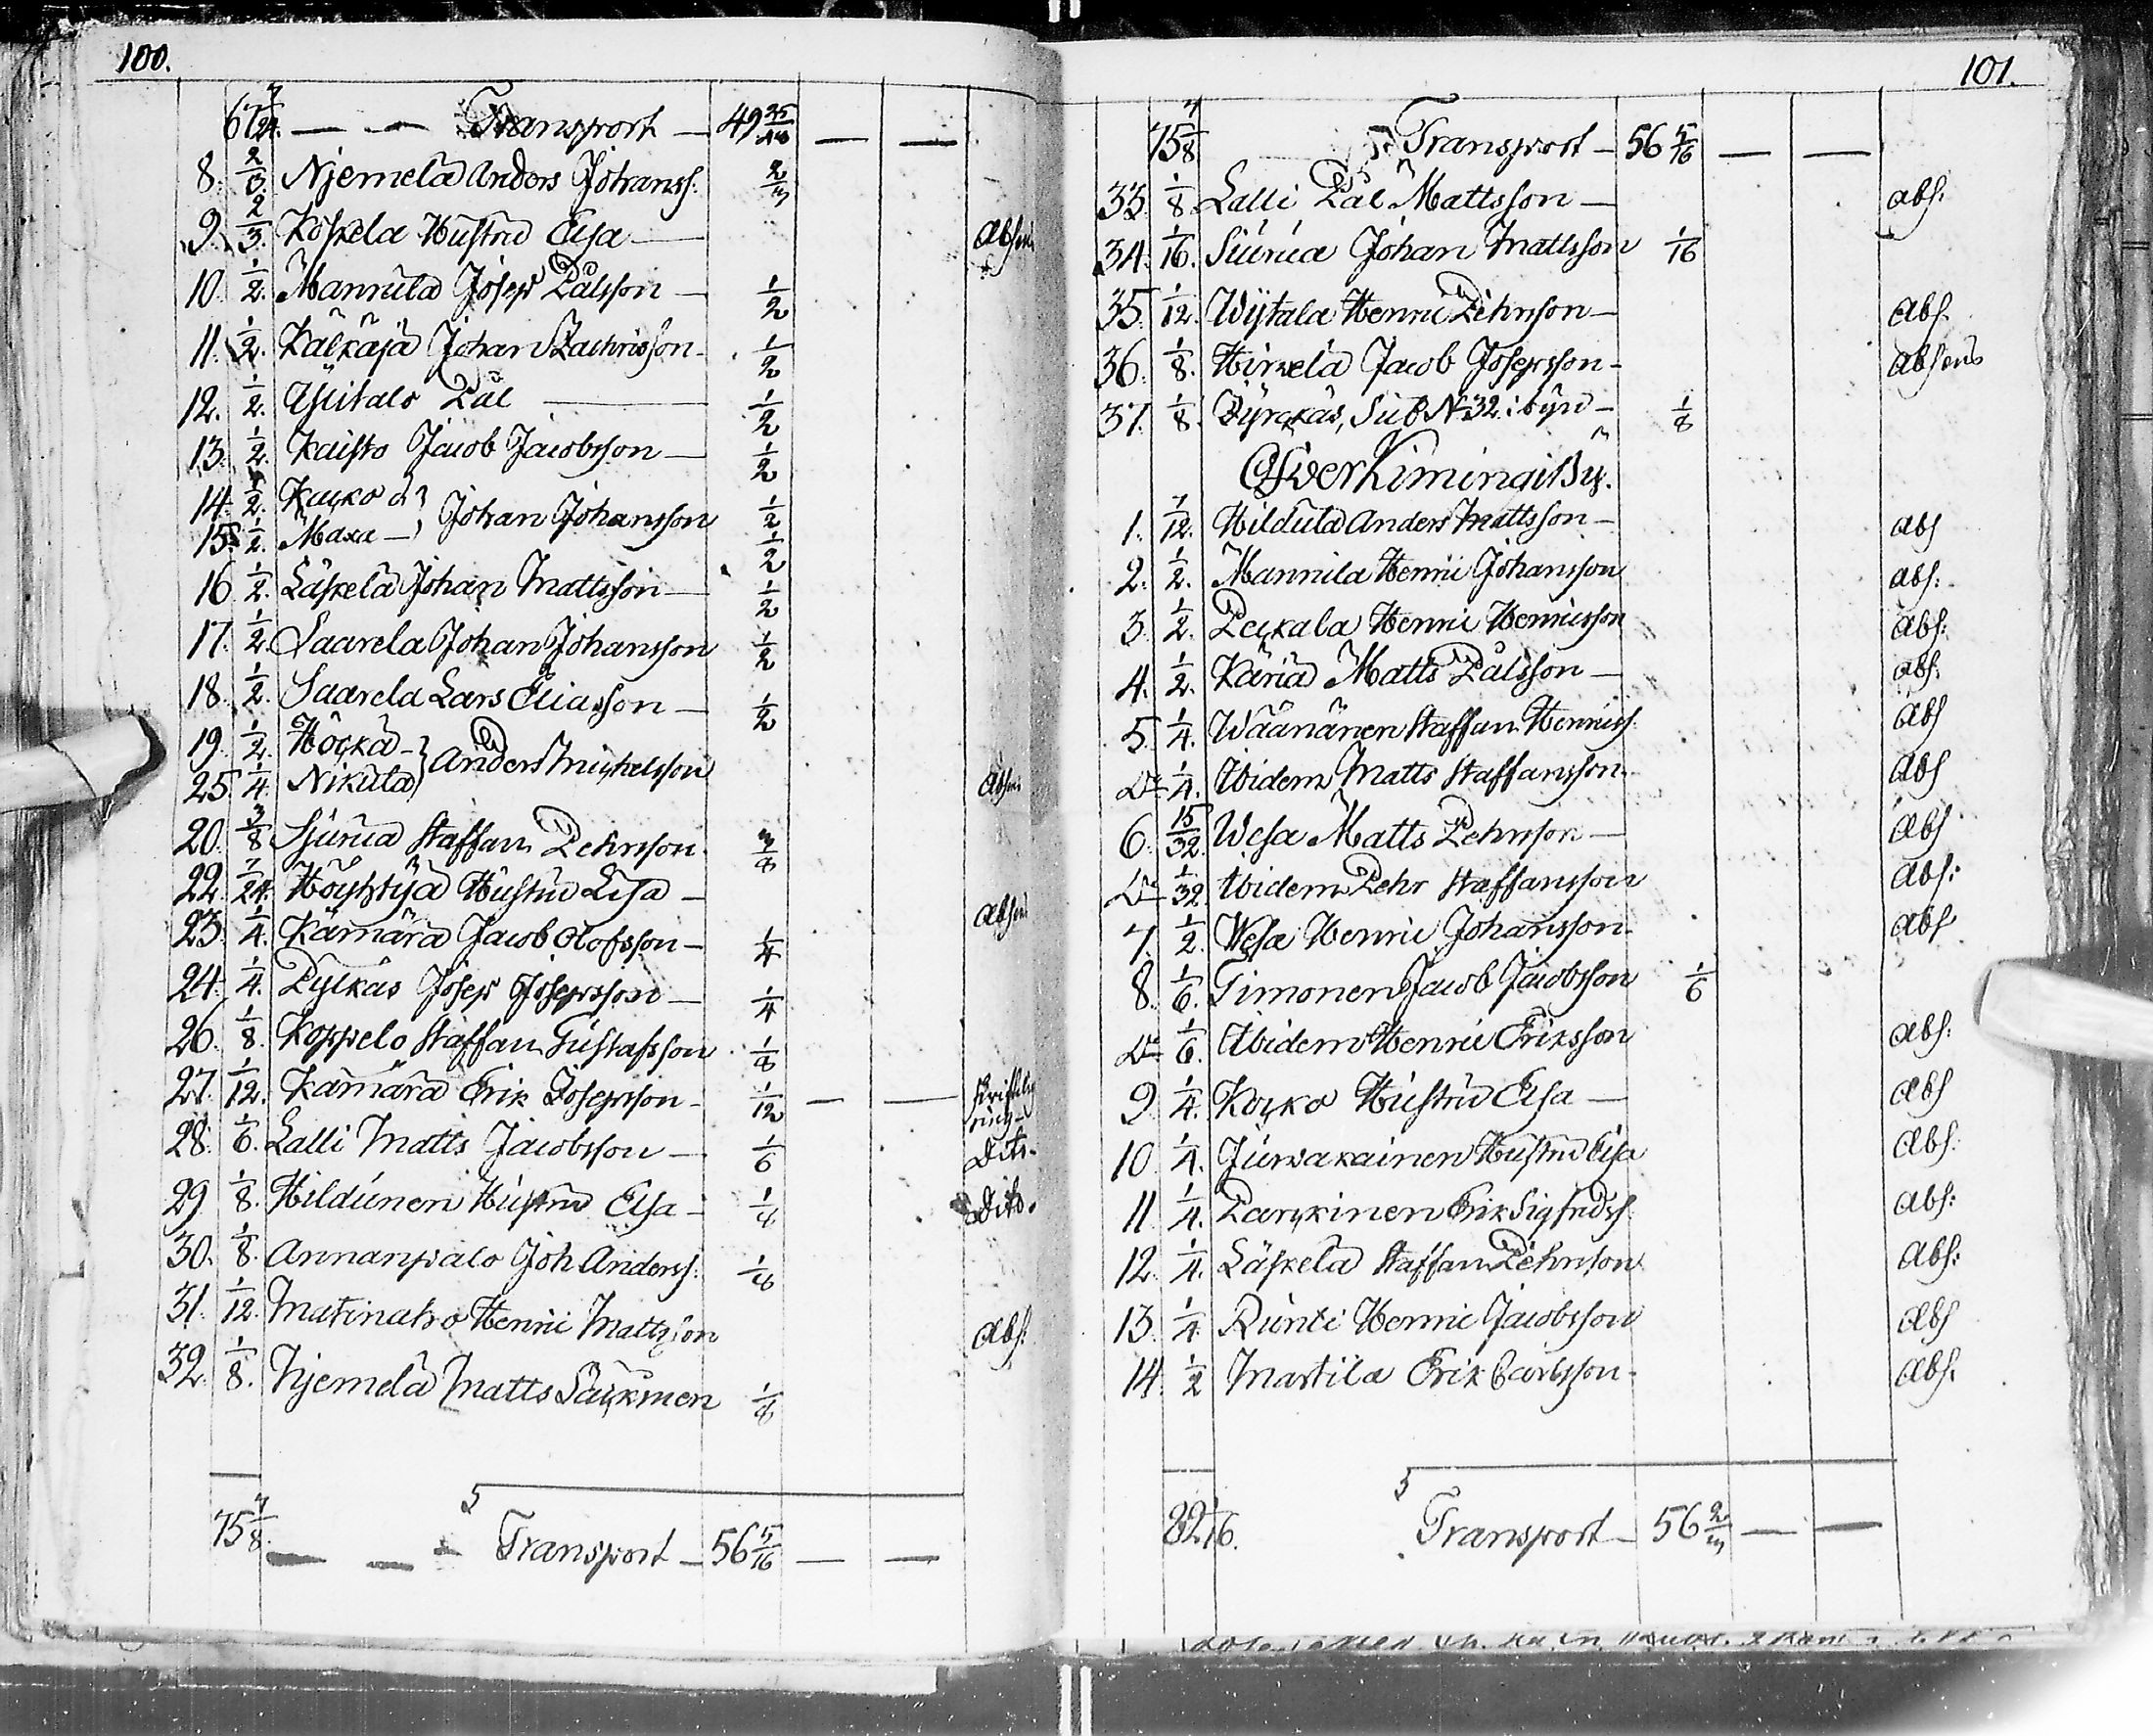 100.
67 7/24. — — Transport — 49 — —
8. 2/3 Njemelä Anders Johanss: 2/3
9. 2/3. Koskela Hustru Elsa — Absens
10. 1/2. Mannula Joseph Pålsson — 1/2
11. 1/2. Kälkäjä Johan Zachrisson — 1/2
12. 1/2. Ylitalo Pål — 1/2
13. 1/2. Kaisto Jacob Jacobsson — 1/2
14. 1/2. Kaçko & } Johan Johansson 1/2
15. 1/2. Maxa — 1/2
16. 1/2. Läskelä Johan Mattsson — 1/2
17. 1/2. Saarela Johan Johansson 1/2
18. 1/2. Saarela Lars Eliasson — 1/2
19. 1/2. Höckä — } Anders Michelsson
25. 1/4. Nikula Absens
20. 3/8 Sjurua Staffan Pehrsson 3/8
22. 7/24. Höyhtyä Hustru Lisa — Absens
23. 1/4. Kämärä Jacob Olofsson — 1/4
24. 1/4. Pylkäs Joseph Josephsson — 1/4
26. 1/8. Koppelo Staffan Gustafsson 1/8
27. 1/12. Kämärä Erik Josephsson — 1/12 — —
28. 1/6. Lalli Matts Jacobsson — 1/6 Dito.
29 1/8. Hildunen Hustru Elsa — 1/8 Dito.
30. 1/8. Annanpalo Joh Anderss: 1/8
31. 1/12. Matinaho Henric Mattsson Abs:
32. 1/8. Njemelä Matts Säckinen 1/8
75 7/8. — — Transport — 56 5/16 — —
101.
75 7/8 Transport — 56 5/16 — —
33. 1/8 Lalli Pål Mattsson — abs:
34. 1/16. Siurua Johan Mattsson 1/16
35. 1/12. Wijtala Henric Pehrsson — Abs.
36. 1/8. Hirvelä Jacob Josephsson — absens
37. 1/8. Pyrckäs, Sub No 32 i byn — 1/8
Öfver Kimingi By.
1. 7/12. Hildula Anders Mattsson — abs
2. 1/2. Mannila Henric Johansson abs:
3. 1/2. Peckala Henric Henricsson abs:
4. 1/2. Käriä Matts Pålsson — abs:
5. 1/4. Wäänänen Staffan Henricss: abs
Do 1/4. Ibidem Matts Staffansson — abs
6. 15/32. Wesa Matts Pehrsson — abs
Do 1/32. Ibidem Pehr Staffansson abs:
7. 1/2. Wesa Henric Johansson — abs
8. 1/6. Timonen Jacob Jacobsson 1/6
Do 1/6. Ibidem Henric Eriksson abs:
9. 1/4. Kocko Hustru Elsa — abs
10. 1/4. Jurvakainen Hustru Elsa Abs:
11. 1/4. Parckinen Erik Sigfridss: Abs:
12. 1/4. Läskelä Staffan Pehrsson Abs:
13. 1/4. Runti Henric Jacobsson Abs
14. 1/2 Martila Erik Carlsson — Abs.
82 1/16. Transport — 56 2/3 — —